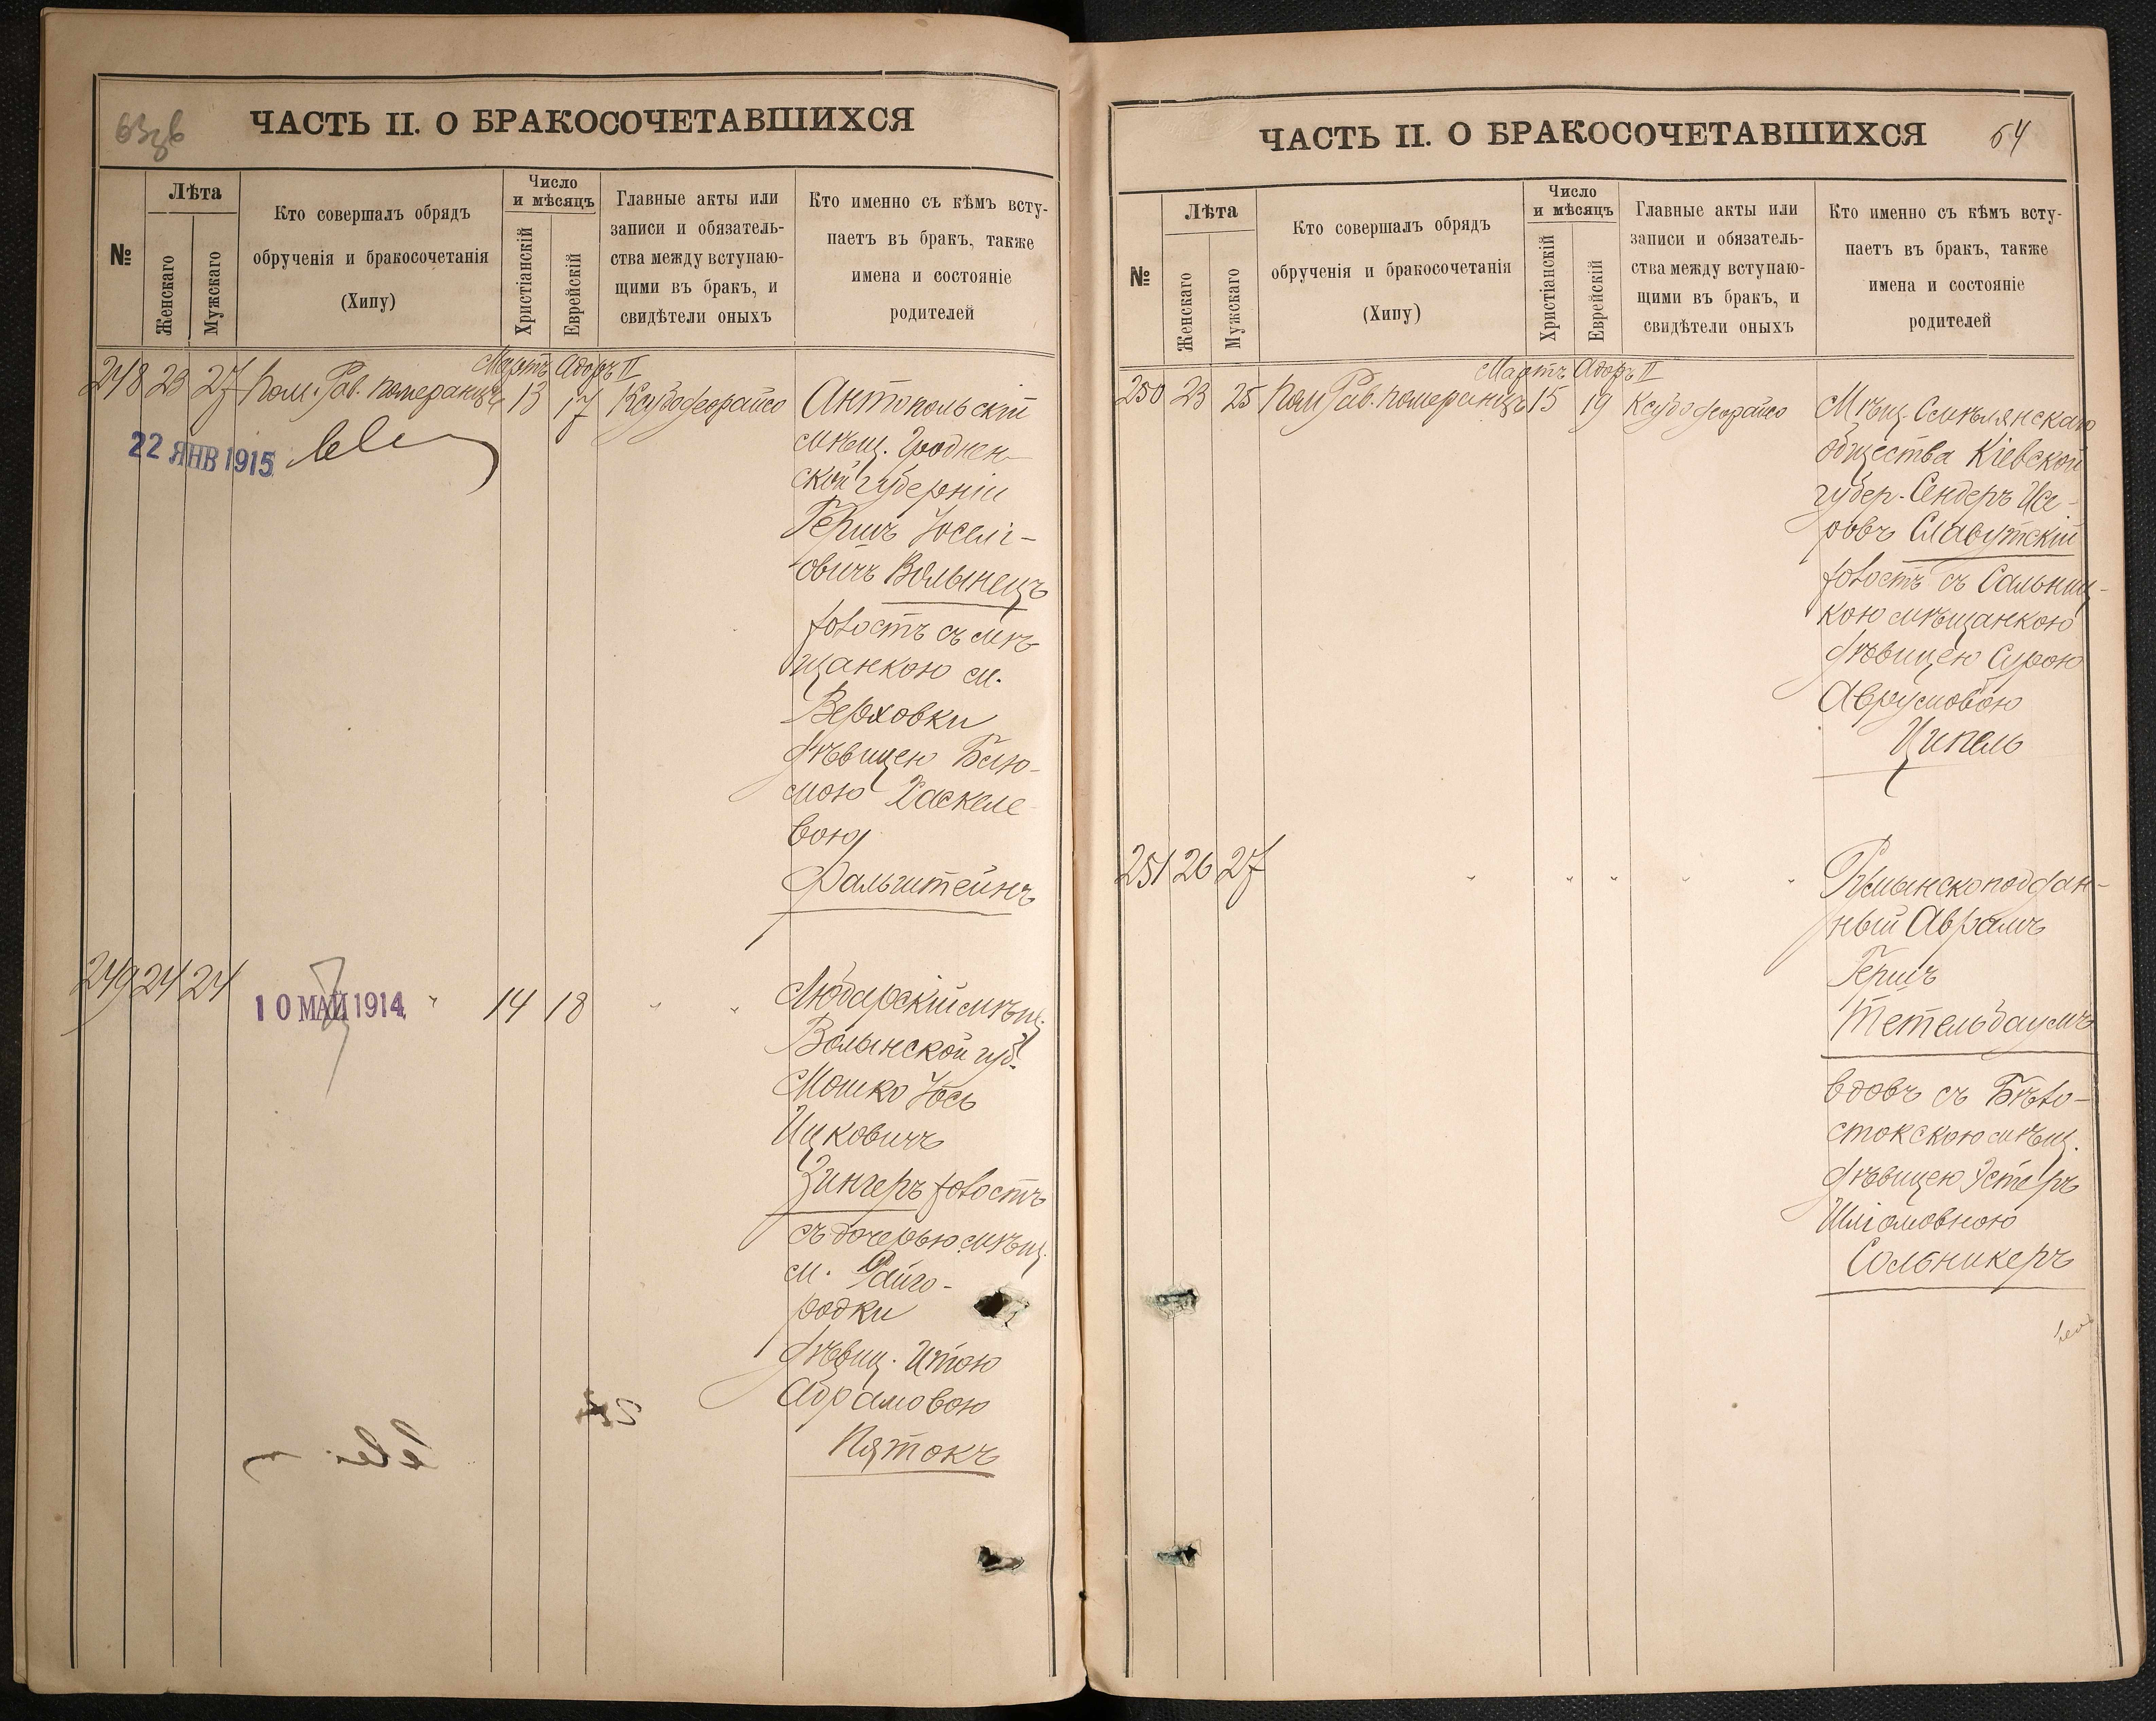 ЧАСТЬ II. О БРАКОСОЧЕТАВШИХСЯ
№
Лѣта
Женскаго
Мужскаго
Кто совершалъ обрядъ
обрученія и бракосочетанія
(Хипу)
Число
и мѣсяцъ
Христіанскій
Еврейскій
Главные акты или
записи и обязатель-
ства между вступаю-
щими въ бракъ, и
свидѣтели оныхъ
Кто именно съ кѣмъ всту-
паетъ въ бракъ, также
имена и состояніе
родителей
Мартъ Адоръ II
248 23 27 Пом. Рав. Померанцъ 13 17
22 ЯНВ 1915
Антопольскій
мѣщ. Гроднен-
ской губерніи
Гершъ Іоселі-
овичъ Волынецъ
холостъ съ мѣ-
щанкою м.
Верховки
дѣвицею Блю-
мою Хаскеле-
вою
Фальштейнъ
249 24 24 " 14 18 " "
10 МАЙ 1914
Любарскій мѣщ.
Волынской губ.
Мошко Іось
Ицковичъ
Зингеръ холостъ
съ дочерью мѣщ.
м. Райго-
родки
дѣвиц. Итою
Абрамовою
Пятокъ
ЧАСТЬ II. О БРАКОСОЧЕТАВШИХСЯ
64
№
Лѣта
Женскаго
Мужскаго
Кто совершалъ обрядъ
обрученія и бракосочетанія
(Хипу)
Число
и мѣсяцъ
Христіанскій
Еврейскій
Главные акты или
записи и обязатель-
ства между вступаю-
щими въ бракъ, и
свидѣтели оныхъ
Кто именно съ кѣмъ всту-
паетъ въ бракъ, также
имена и состояніе
родителей
Мартъ Адоръ II
250 23 25 Пом Рав. Померанцъ 15 19
Мѣщ. Смѣлянскаго
общества Кіевской
губер. Сендеръ Исе-
ровъ Славутскій
холостъ съ Сальниц-
кою мѣщанкою
дѣвицею Сурою
Аврумовою
Ципель
251 26 27 " " " " "
Румынскоподдан-
ный Аврамъ
Гершъ
Тетельбаумъ
вдовъ съ Бѣло-
стокскою мѣщ.
дѣвицею Эстеръ
Шліомовною
Сольникеръ